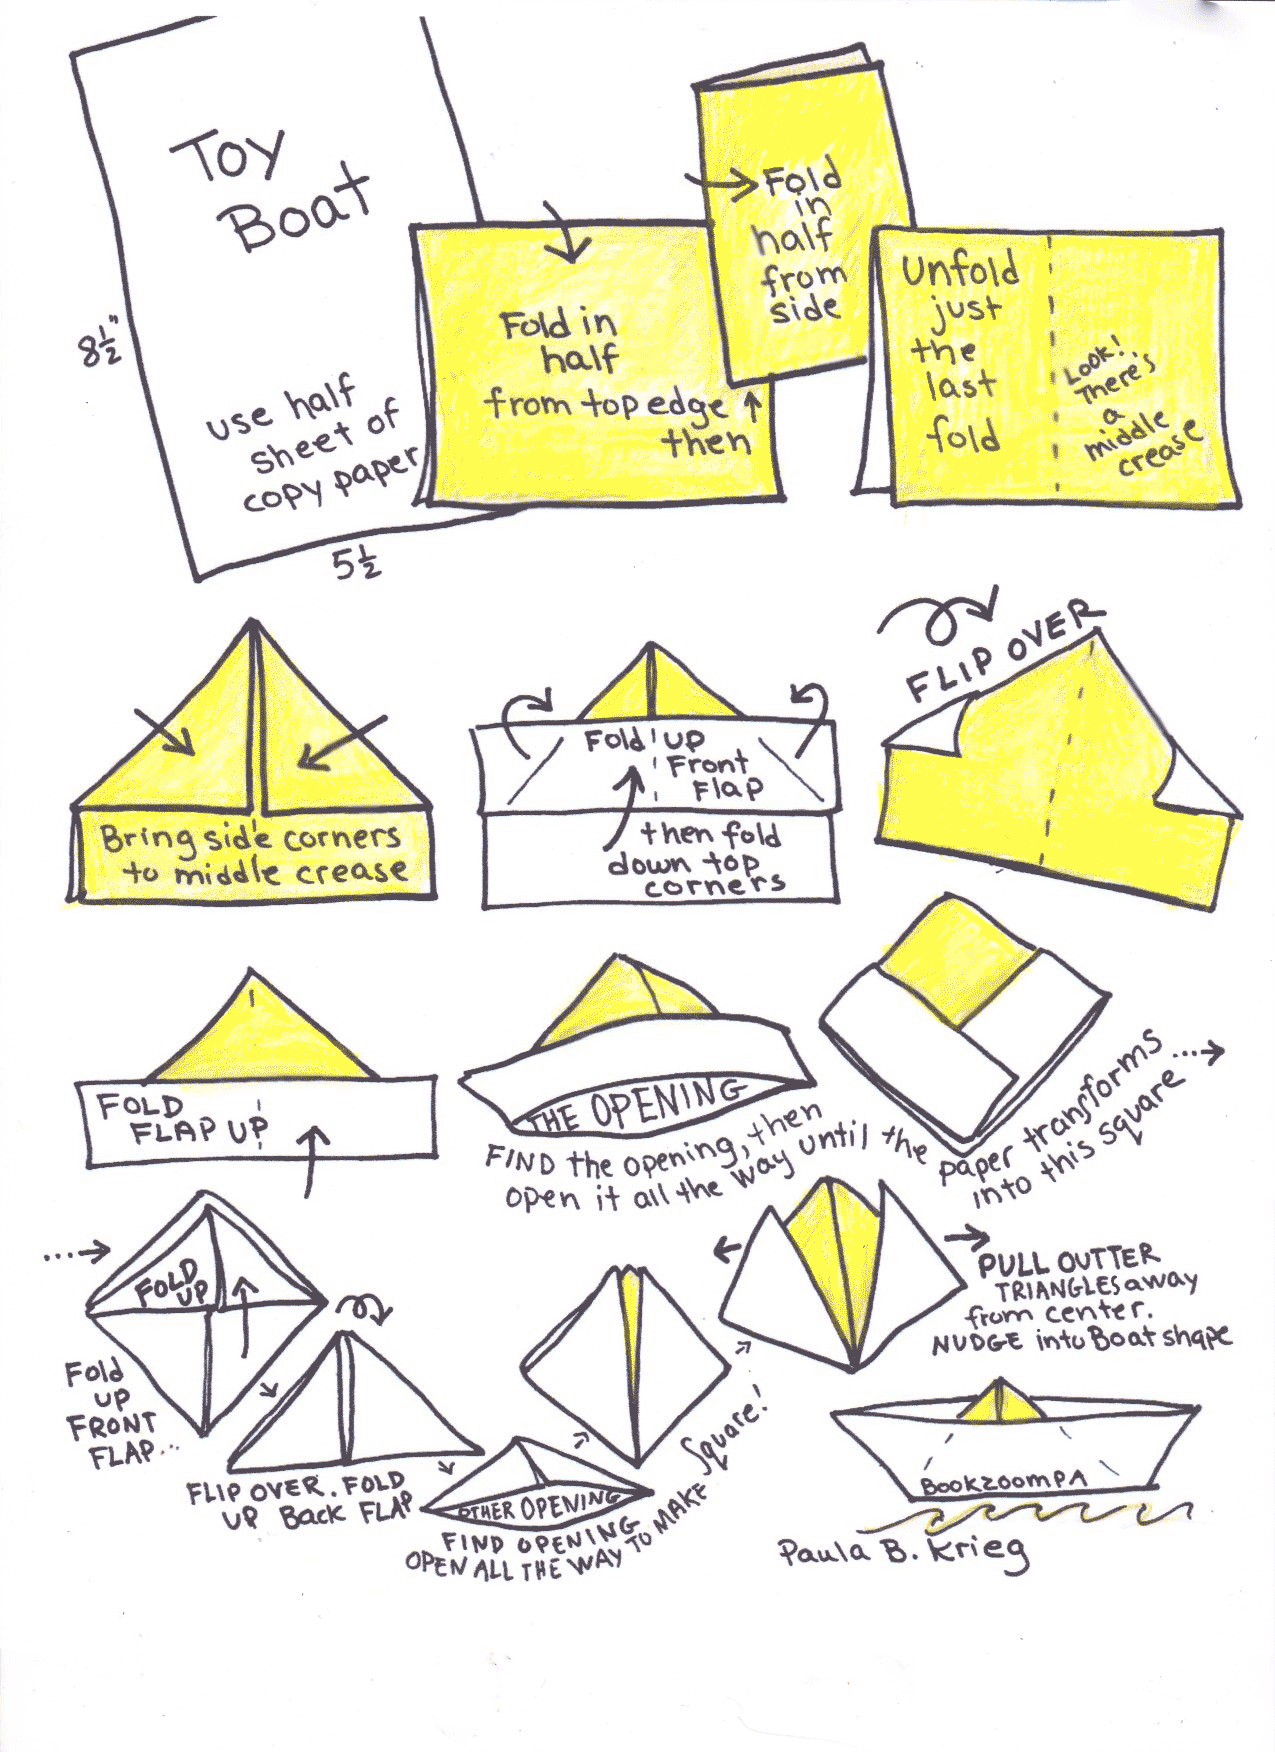 Toy
Boat
8½"
use half
sheet of
copy paper
5½
Fold in
half
from top edge
then
Fold
in
half
from
side
Unfold
just
the
last
fold
Look!
There's
a
middle
crease
Bring side corners
to middle crease
Fold up
Front
Flap
then fold
down top
corners
FLIP OVER
FOLD
FLAP UP
THE OPENING
FIND the opening, then
open it all the way until the
paper transforms
into this square
FOLD
UP
Fold
UP
FRONT
FLAP...
FLIP OVER. FOLD
UP Back FLAP
OTHER OPENING
FIND OPENING
OPEN ALL THE WAY TO MAKE Square!
PULL OUTTER
TRIANGLES away
from center.
NUDGE into Boat shape
BookzoomPA
Paula B. Krieg